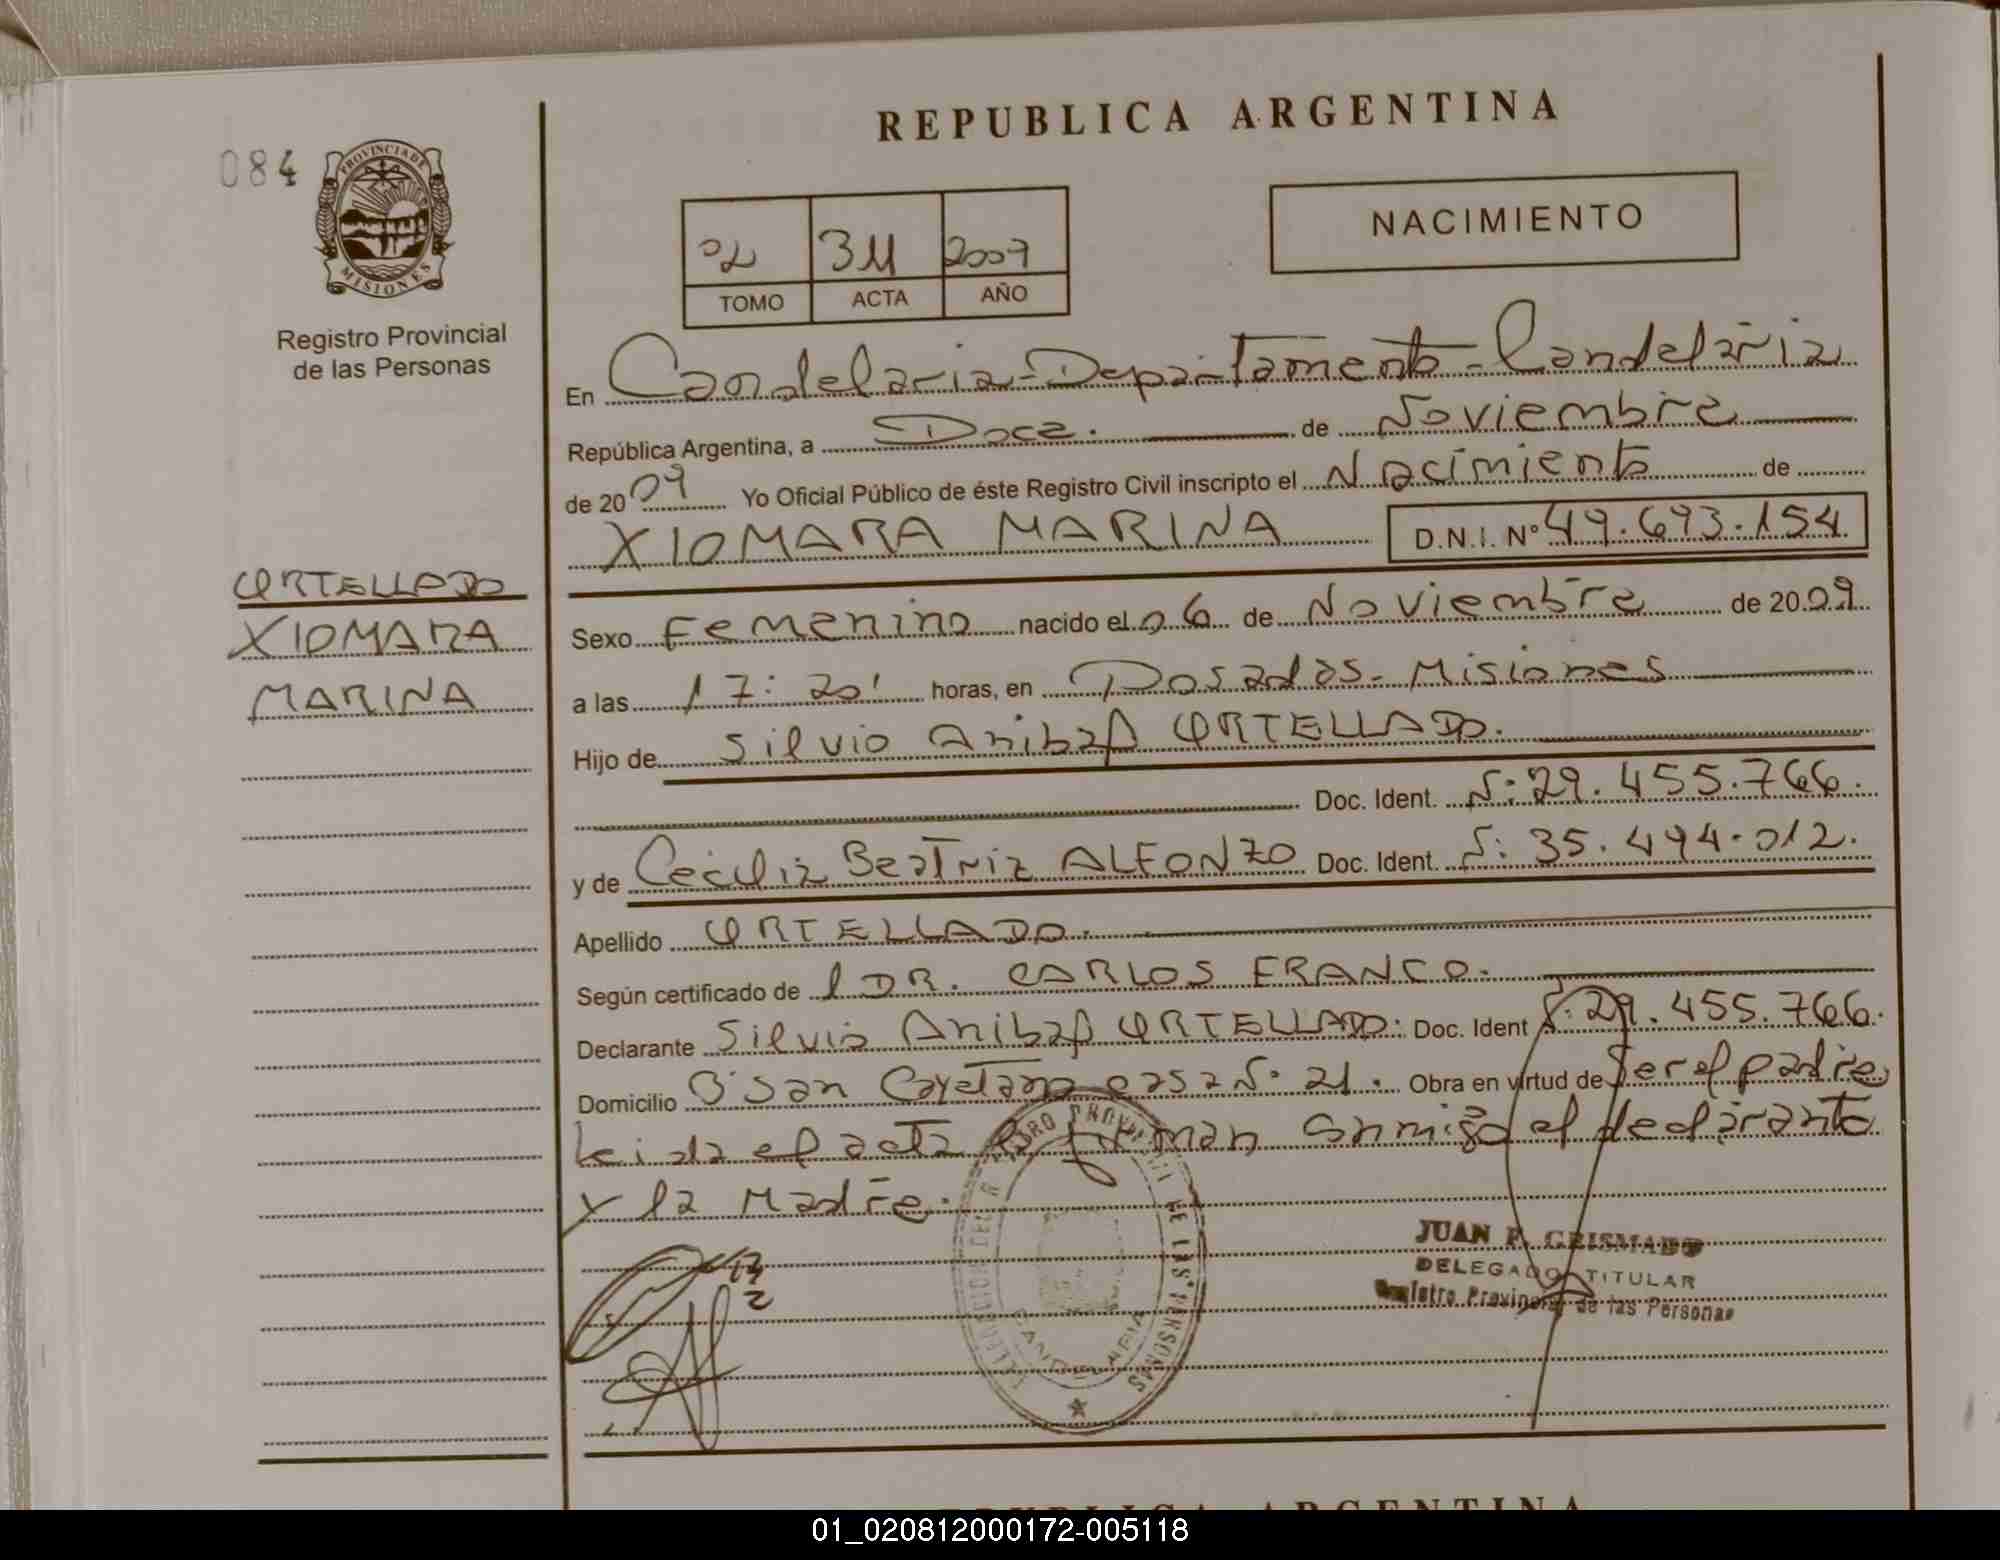 REPUBLICA ARGENTINA
084
PROVINCIA DE
MISIONES
Registro Provincial
de las Personas
NACIMIENTO
02 311 2009
TOMO ACTA AÑO
En Candelaria - Departamento - Candelaria
República Argentina, a Doce. de Noviembre
de 2009 Yo Oficial Público de éste Registro Civil inscripto el Nacimiento de
XIOMARA MARINA D.N.I. Nº 49.693.154
ORTELLADO
XIOMARA
MARINA
Sexo Femenino nacido el 06 de Noviembre de 2009
a las 17:20' horas, en Posadas - Misiones
Hijo de Silvio Anibal ORTELLADO.
Doc. Ident. N: 29.455.766.
y de Cecilia Beatriz ALFONZO Doc. Ident. N: 35.494.012.
Apellido ORTELLADO.
Según certificado de l DR. CARLOS FRANCO.
Declarante Silvio Anibal ORTELLADO: Doc. Ident N: 29.455.766.
Domicilio Bº San Cayetano casa Nº 21. Obra en virtud de Ser el padre
Leida el acta firman conmigo el declarante
y la Madre.
REGISTRO PROVINCIAL DE LAS PERSONAS
CANDELARIA
JUAN F. GRISMADO
DELEGADO TITULAR
Registro Provincial de las Personas
REPUBLICA ARGENTINA
01_020812000172-005118